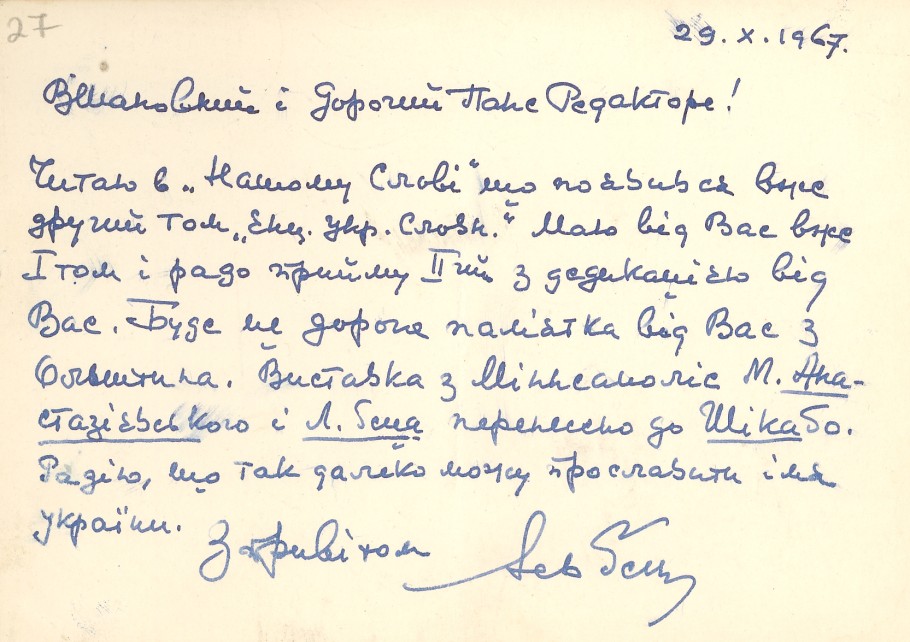 27
29.X.1967.
Вшановний і Дорогий Пане Редакторе!
Читаю в „Нашому Слові" що появився вже
другий том „Енц. Укр. Словн." Маю від Вас вже
I том і радо прийму II-ий з дедикацією від
Вас. Буде це дорога памятка від Вас з
Ольштина. Виставка з Міннеаполіс М. Ана-
стазієвського і Л. Геца перенесено до Шікаґо.
Радію, що так далеко можу прославити імя
України.
З привітом Лев Гец